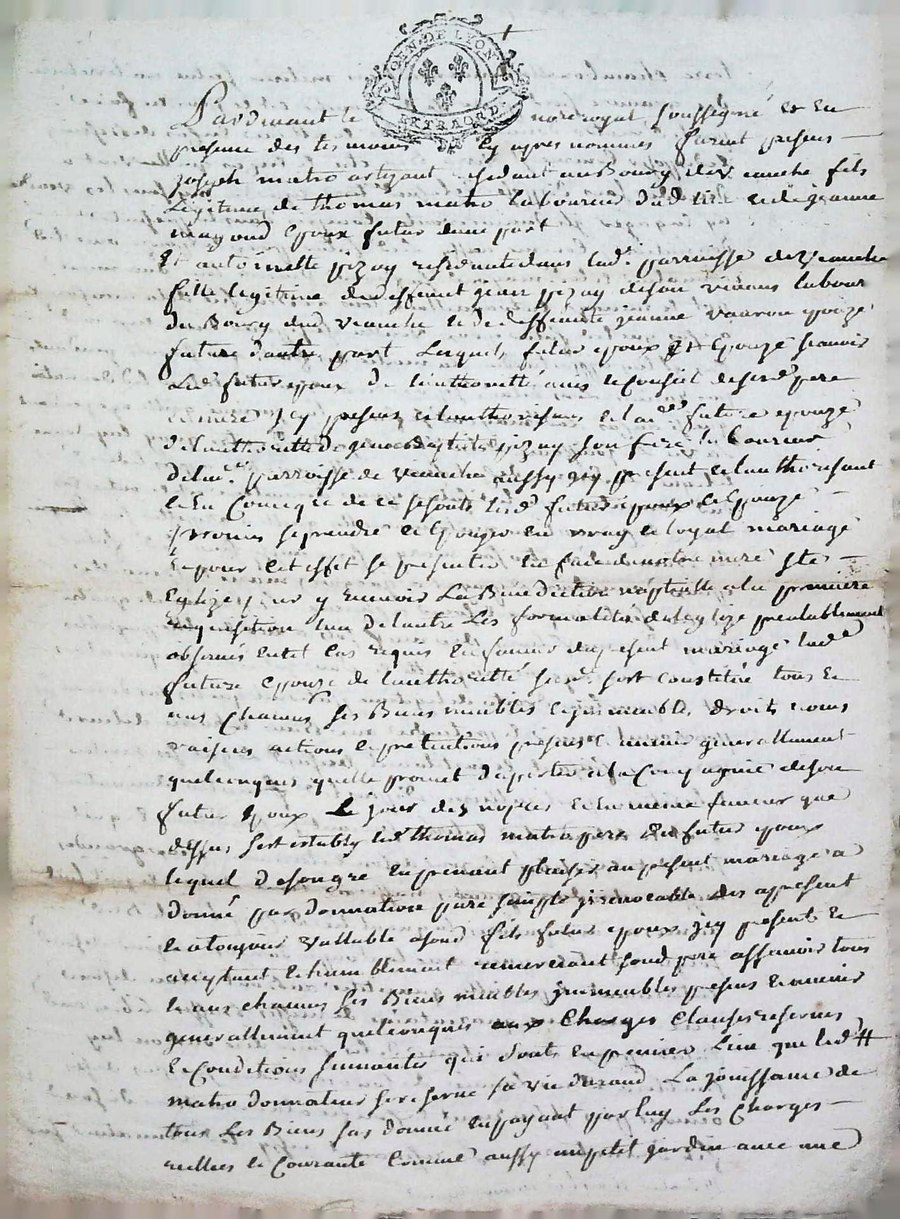 GEN. DE LYON
EXTRAORD.
Pardevant le notre royal soussigné et en
presence des tesmoins cy apres nommés furent presens
joseph matro artizant residant au Bourg de Veauche fils
Legitime de thomas matro laboureur dud. lieu et de jeanne
mayoud Epoux futur d'une part
Et antoinette pizay residante dans lad. parroisse de Veauche
fille legitime de deffunt jean pizay de son vivant labour
du Bourg dud Veauche et de deffunte jeanne epouze
future d'autre part Lesquels futur epoux Et Epouze scavoir
Led. futur epoux de l'authorité avis et conseil de sesd. pere
et mere jcy presens et l'authorisans et lad. future epouze
de l'authorité de jean Baptiste pizay son frere laboureur
de lad. parroisse de Veauche aussy jcy present et l'authorisant
le de ce se sont lesd. futurs epoux et Epouze
promis se prendre et Epouzer en vray et loyal mariage
Et pour cet effet se presenter En face de notre mere Ste
Eglize pour y recevoir La Benediction nuptialle a la premiere
requisition l'un de l'autre Les formalités de l'eglize prealablement
observés en tel cas requis En faveur du present mariage lad.
future Epouze de l'authorité sest constitué tous et
uns Chacuns ses Biens meubles et jmmeubles, droits noms
raisons actions et pretentions presens et avenir generallement
quelconques quelle promet d'aporter a la Compagnie de son
futur Epoux le jour des nopces et en meme faveur que
dessus sest estably led. thomas matro pere du futur epoux
lequel de son gre en prenant plaisir au present mariage a
donné par donnation pure simple jrrevocable des apresent
et a toujour Vallable a sond fils futur epoux jcy present et
acceptant et humblement remerciant sond pere assavoir tous
et uns chacuns ses Biens meubles jmmeubles presens et avenir
generallement quelconques aux Charges Clauses reserves
et Conditions suivantes qui sont en premier Lieu que led
matro donnateur se reserve sa vie durand La jouissance de
tous Les Biens par luy donné en payant par luy Les Charges
reelles et Courante Comme aussy un petit jardin avec une